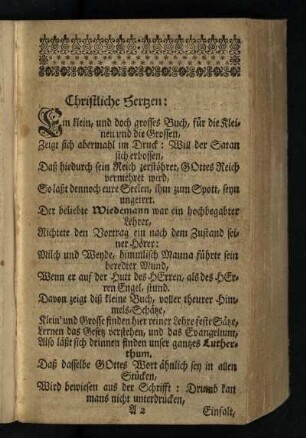 Christliche Hertzen:
Ein klein, und doch grosses Buch, für die Klei-
nen und die Grossen,
Zeigt sich abermahl im Druck: Will der Satan
sich erbossen,
Daß hiedurch sein Reich zerstöhret, GOttes Reich
vermehret werd,
So laßt dennoch eure Seelen, ihm zum Spott, seyn
ungeirrt.
Der beliebte Wiedemann war ein hochbegabter
Lehrer,
Richtete den Vortrag ein nach dem Zustand sei-
ner Hörer:
Milch und Weyde, himmlisch Manna führte sein
beredter Mund,
Wenn er auf der Hutt des HErren, als des HEr-
ren Engel, stund.
Davon zeigt diß kleine Buch, voller theurer Him-
mels-Schätze,
Klein' und Grosse finden hier reiner Lehre feste Sätze,
Lernen das Gesetz verstehen, und das Evangelium,
Also läßt sich drinnen finden unser gantzes Luther-
thum,
Daß dasselbe GOttes Wort ähnlich sey in allen
Stücken,
Wird bewiesen aus der Schrifft: Drumb kan
mans nicht unterdrücken,
A 2 Einfalt,